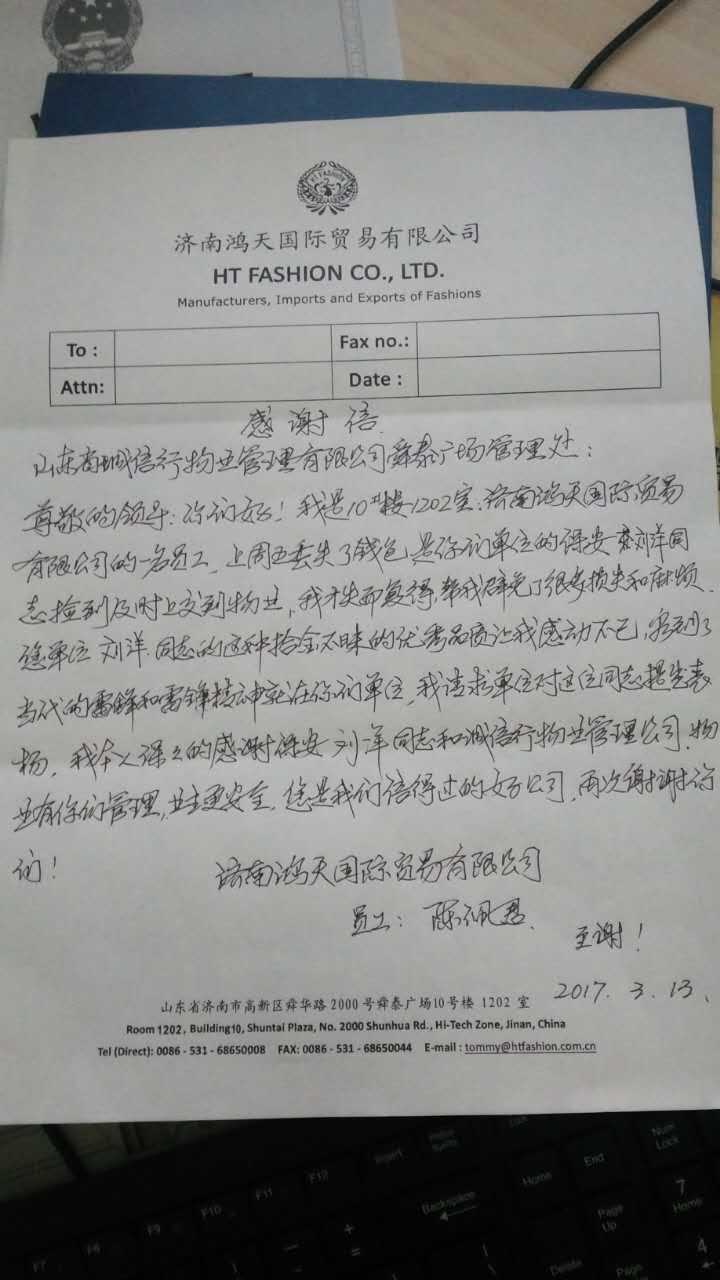 HT FASHION
济南鸿天国际贸易有限公司
HT FASHION CO., LTD.
Manufacturers, Imports and Exports of Fashions
To : Fax no.:
Attn: Date :
感谢信
山东省诚信行物业管理有限公司舜泰广场管理处:
尊敬的领导:你们好!我是10#楼1202室:济南鸿天国际贸易
有限公司的一名员工,上周五丢失了钱包,是你们单位的保安刘洋同
志捡到及时上交到物业,我才失而复得,帮我避免了很多损失和麻烦.
您单位刘洋.同志的这种拾金不昧的优秀品质让我感动不已,
当代的雷锋和雷锋精神就在你们单位,我请求单位对这位同志提出表
扬,我本人深深的感谢保安刘洋同志和诚信行物业管理公司.物
业有你们管理,业主更安全.您是我们信得过的好公司,再次谢谢你
们!
济南鸿天国际贸易有限公司
员工:陈佩君.
至谢!
2017.3.13.
山东省济南市高新区舜华路2000号舜泰广场10号楼 1202 室
Room 1202, Building10, Shuntai Plaza, No. 2000 Shunhua Rd., Hi-Tech Zone, Jinan, China
Tel (Direct): 0086 - 531 - 68650008 FAX: 0086 - 531 - 68650044 E-mail : tommy@htfashion.com.cn
F7 F8 F9 F10 F11 F12 Insert Home End Num Lock
Backspace Page Up 7 Home
Delete Page 4